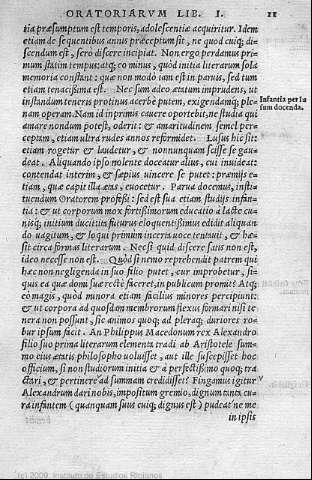 ORATORIARVM LIB. I. 11
tia præsumptum est temporis, adolescentiæ acquiritur. Idem
etiam de sequentibus annis præceptum sit, ne quod cuiq; di-
scendum est, sero discere incipiat. Non ergo perdamus pri-
mum statim tempus: atq; eo minus, quòd initia literarum sola
memoria constant: quæ non modò iam est in paruis, sed tum
etiam tenacissima est. Nec sum adeo ætatum imprudens, ut
instandum teneris protinus acerbè putem, exigendamq; ple-
nam operam. Nam id inprimis cauere oportebit, ne studia qui
amare nondum potest, oderit: & amaritudinem semel per-
ceptam, etiam ultra rudes annos reformidet. Lusus hic sit:
etiam rogetur & laudetur, & nonnunquam scisse se gau-
deat. Aliquando ipso nolente doceatur alius, cui inuideat:
contendat interim, & sæpius uincere se putet: præmijs e-
tiam, quæ capit illa ætas, euocetur. Parua docemus, institu-
endum Oratorem professi: sed est sua etiam studijs infan-
tia: & ut corporum mox fortissimorum educatio à lacte cu-
nisq; initium ducit: ita futurus eloquentissimus edidit aliquan
do uagitum, & loqui primùm incerta uoce tentauit, & hæ-
sit circa formas literarum. Nec si quid discere satis non est,
ideo necesse non est. Quòd si nemo reprehendit patrem qui
hæc non negligenda in suo filio putet, cur improbetur, si-
quis ea quæ domi suæ rectè faceret, in publicum promit? Atq;
eo magis, quòd minora etiam facilius minores percipiunt:
& ut corpora ad quosdam membrorum flexus formari nisi te-
nera non possunt, sic animos quoq; ad pleraq; duriores ro-
bur ipsum facit. An Philippus Macedonum rex Alexandro
filio suo prima literarum elementa tradi ab Aristotele sum-
mo eius ætatis philosopho uoluisset, aut ille suscepisset hoc
officium, si non studiorum initia & à perfectissimo quoq; tra
ctari, & pertinere ad summam credidisset? Fingamus igitur
Alexandrum dari nobis, impositum gremio, dignum tanta cu-
ra infantem (quanquam suus cuiq; dignus est) pudeat ne me
in ipsis
Infantia per lu
sum docenda.
(c) 2009. Instituto de Estudios Riojanos